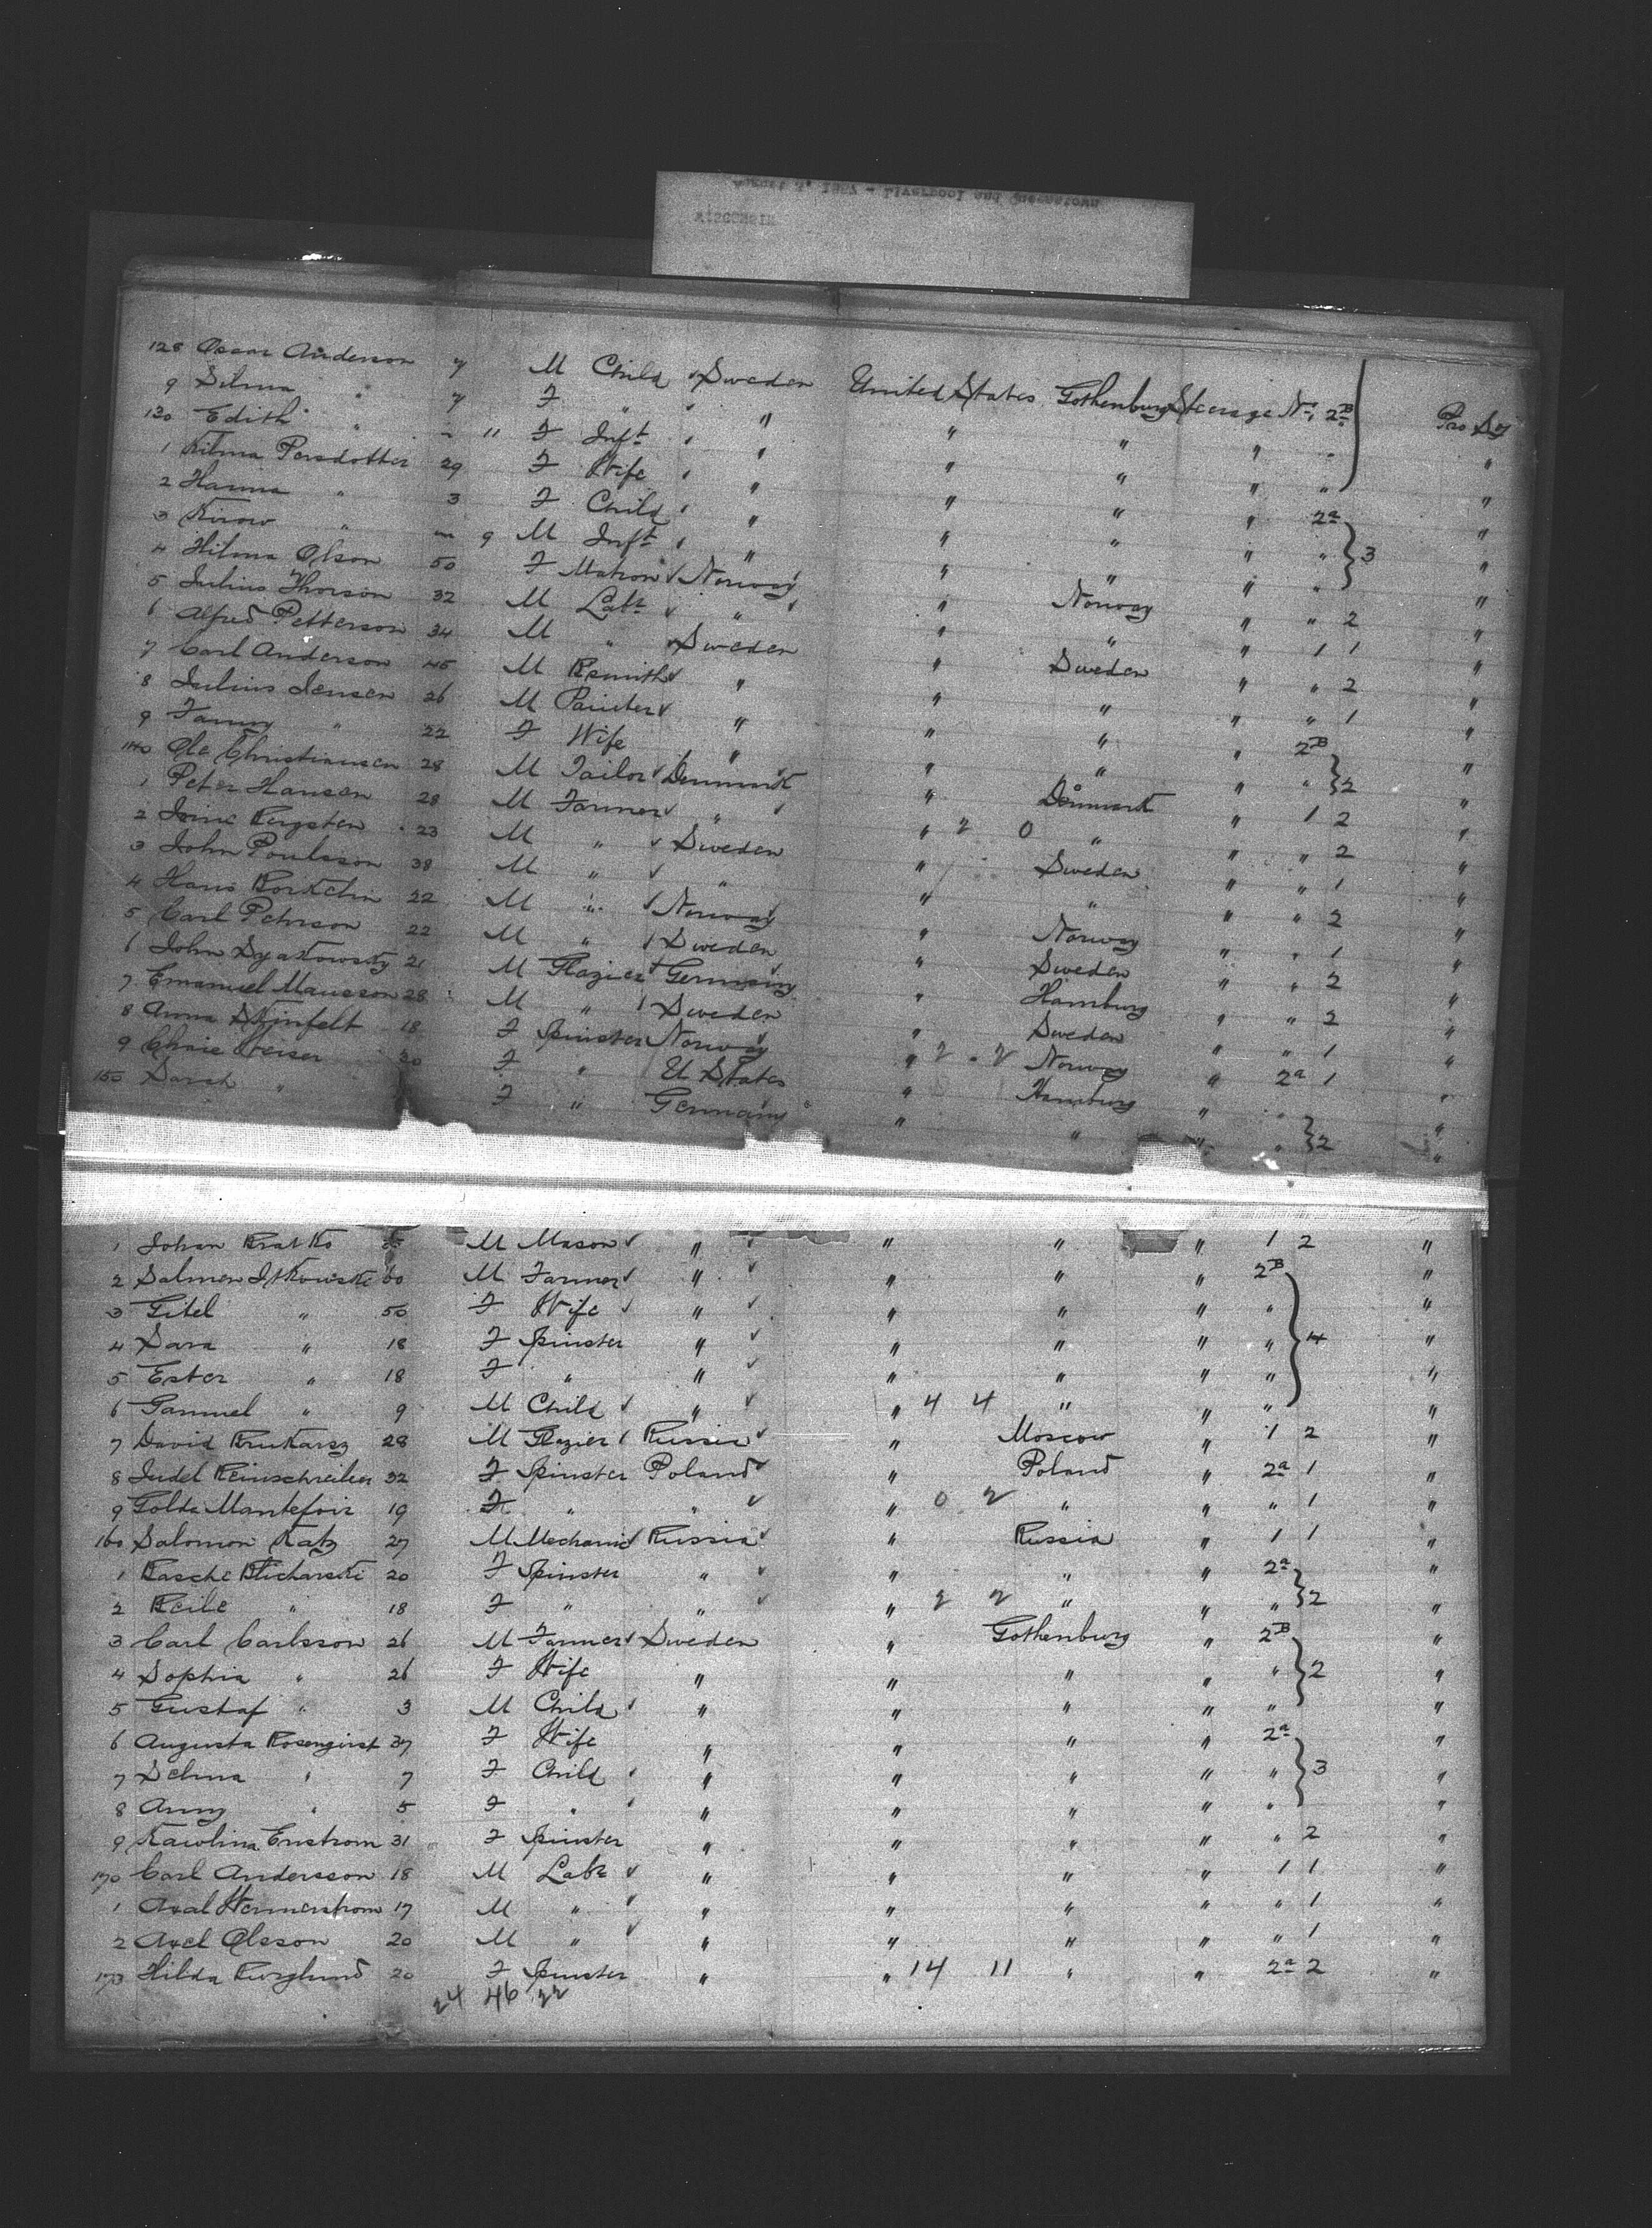 August 4, 1887 - Liverpool and Queenstown
WISCONSIN
128 Oscar Anderson 7 M Child Sweden United States Gothenburg Steerage No 1 2B Pro Sg
9 Selma " 7 F " " " " " " "
130 Edith " - 11 F Inft " " " " " "
1 Hilma Persdotter 29 F Wife " " " " 2a "
2 Hanna " 3 F Child " " " " " 3 "
3 " 9 M Inft " " " " " "
4 Hilma Olson 50 F Matron Norway " Norway " " 2 "
5 Julius Thorson 32 M Labr " " " " 1 1 "
6 Alfred Petterson 34 M " Sweden " Sweden " " 2 "
7 Carl Anderson 45 M Bsmith " " " " " 1 "
8 Julius Jensen 26 M Painter " " " " 2B "
9 Fanny " 22 F Wife " " " " " 2 "
140 Ole Christiansen 28 M Tailor Denmark " Denmark " 1 2 "
1 Peter Hansen 28 M Farmer " " 2 0 " " " 2 "
2 23 M " Sweden " Sweden " " 1 "
3 John Poulsson 38 M " " " " " " 2 "
4 Hans 22 M " Norway " Norway " " 1 "
5 Carl Pehrson 22 M " Sweden " Sweden " " 2 "
6 John 21 M Glazier Germany " Hamburg " " 2 "
7 Emanuel Mausson 28 M " Sweden " Sweden " " 1 "
8 Anna 18 F Spinster Norway " 2 - 2 Norway " 2a 1 "
9 20 F " U States " Hamburg " " "
150 Sarah " F " Germany " " " " 2 "
1 Johan M Mason " " " " 1 2 "
2 Salmen Itkowski 60 M Farmer " " " " 2B "
3 Gitel " 50 F Wife " " " " " "
4 Sara " 18 F Spinster " " " " " 4 "
5 Ester " 18 F " " " " " " "
6 Sammel " 9 M Child " " 4 4 " " " "
7 David 28 M Glazier Russia " Moscow " 1 2 "
8 Judel Reinschreiber 32 F Spinster Poland " Poland " 2a 1 "
9 Golde 19 F " " " 0 2 " " " 1 "
160 Salomon Katz 27 M Mechanic Russia " Russia " 1 1 "
1 20 F Spinster " " " " 2a "
2 Reile " 18 F " " " 2 2 " " " 2 "
3 Carl Carlsson 26 M Farmer Sweden " Gothenburg " 2B "
4 Sophia " 26 F Wife " " " " " 2 "
5 Gustaf " 3 M Child " " " " " "
6 Augusta 37 F Wife " " " " 2a "
7 Selma " 7 F Child " " " " " 3 "
8 Anny " 5 F " " " " " " "
9 Karolina Enstrom 31 F Spinster " " " " " 2 "
170 Carl Andersson 18 M Labr " " " " 1 1 "
1 Axal 17 M " " " " " " 1 "
2 Axel Olsson 20 M " " " " " " 1 "
173 Hilda 20 F Spinster " " 14 11 " " 2a 2 "
24 46 22